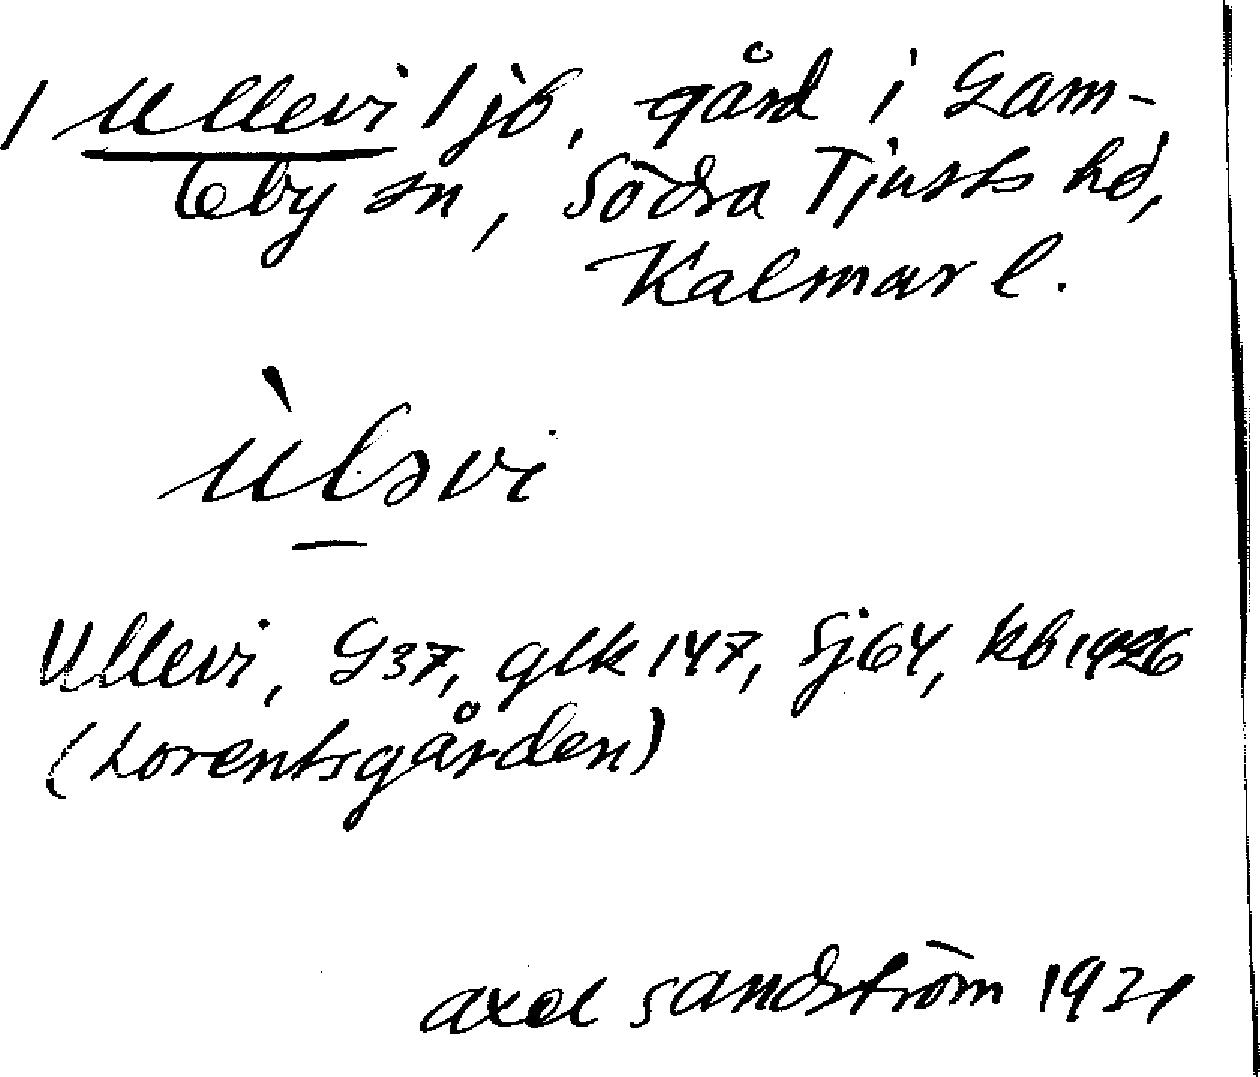 / Ullevi / jb, gård i Gam-
leby sn, Södra Tjusts hd,
Kalmar l.
ùləvi
Ullevi, G37, glk 147, Sj64, kb 1926
(Lorentsgården)
Axel Sandström 1931